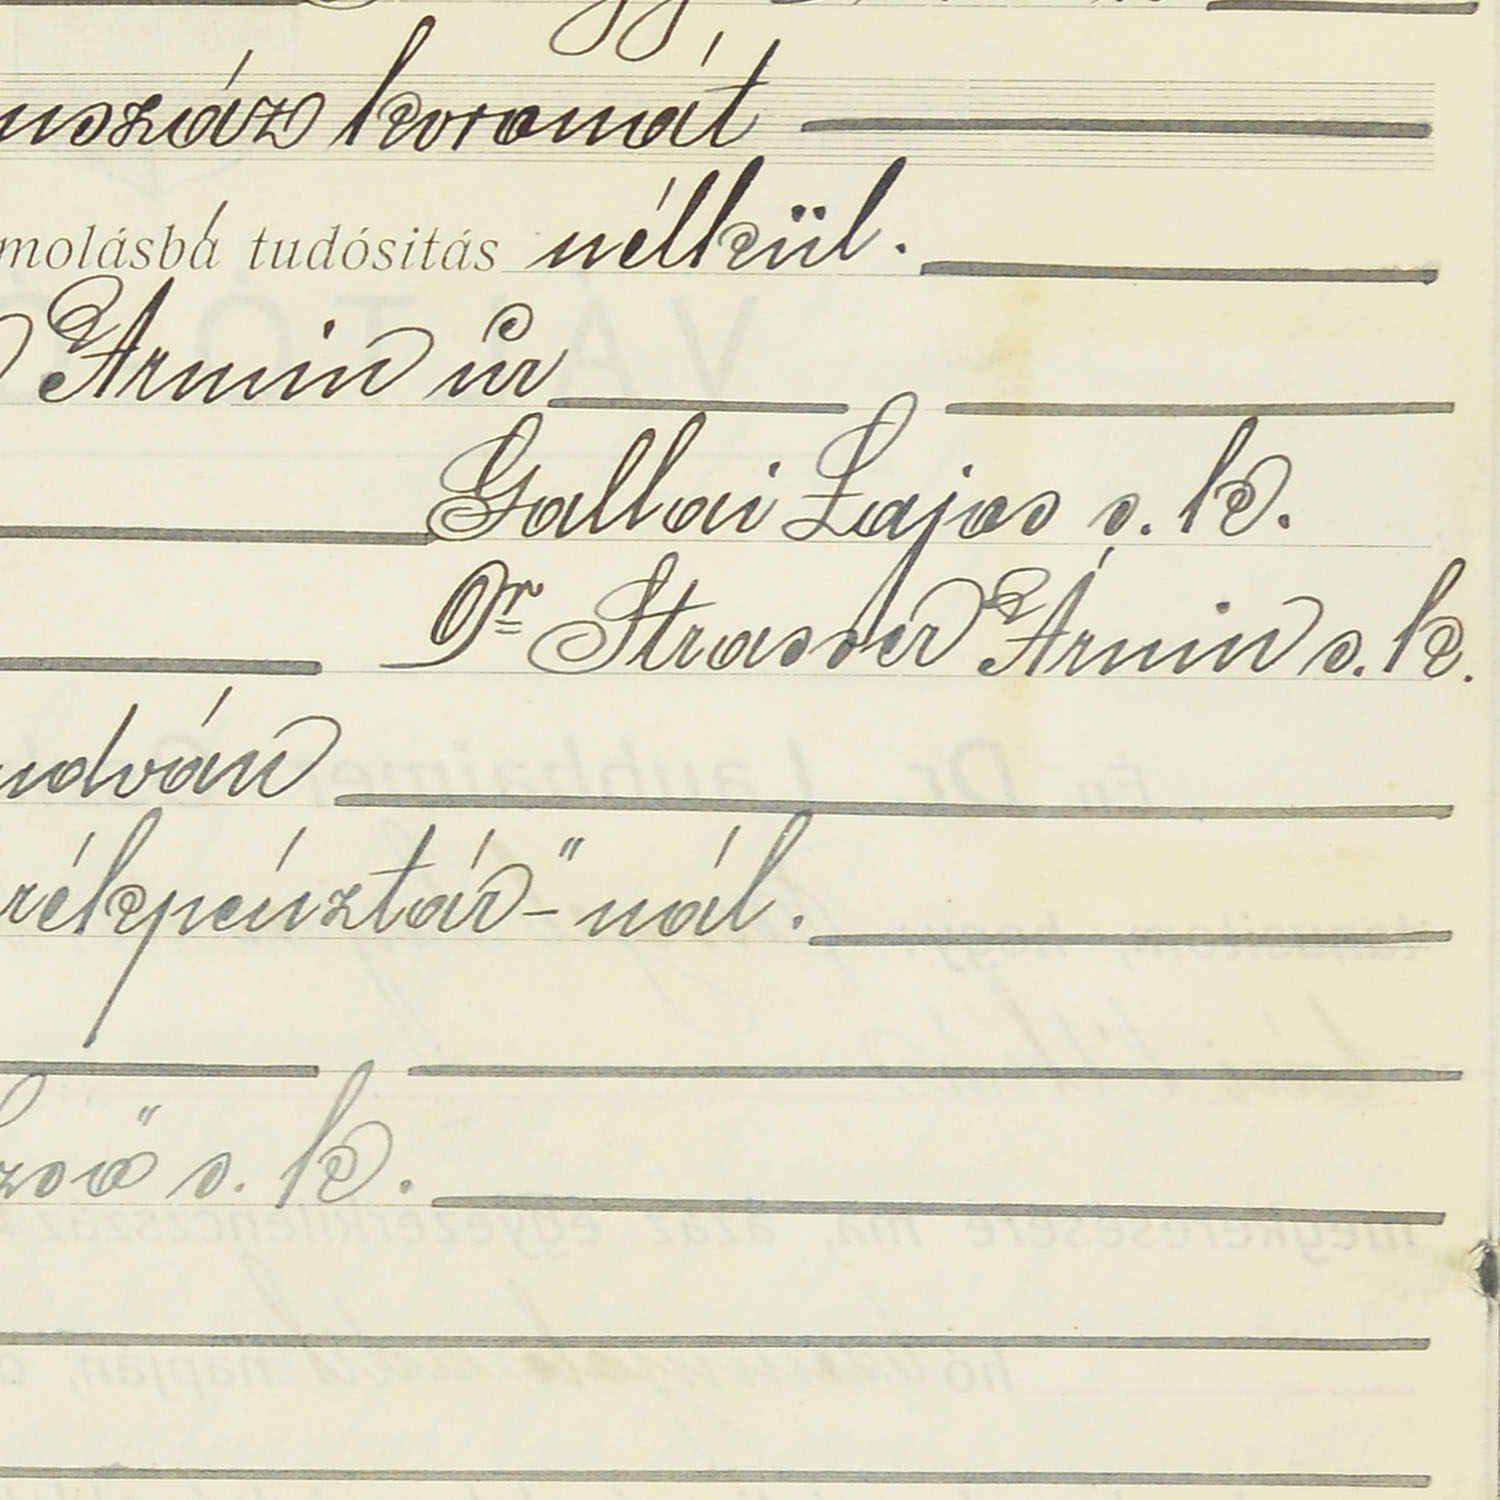 uszáz koronát
molásba tudósitás nélkül.
Ármin úr
Gallai Lajos s. k.
Dr Strasser Ármin s. k.
udván
rékpénztár-" nál.
zső s. k.